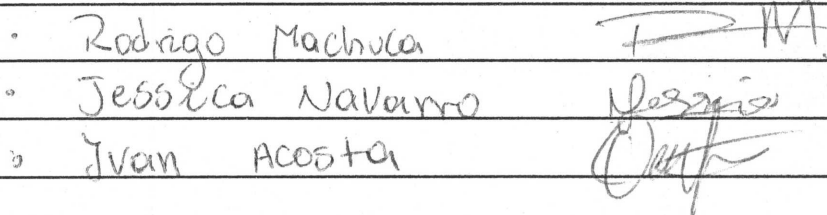 • Rodrigo Machuca R M.
• Jessica Navarro
• Ivan Acosta